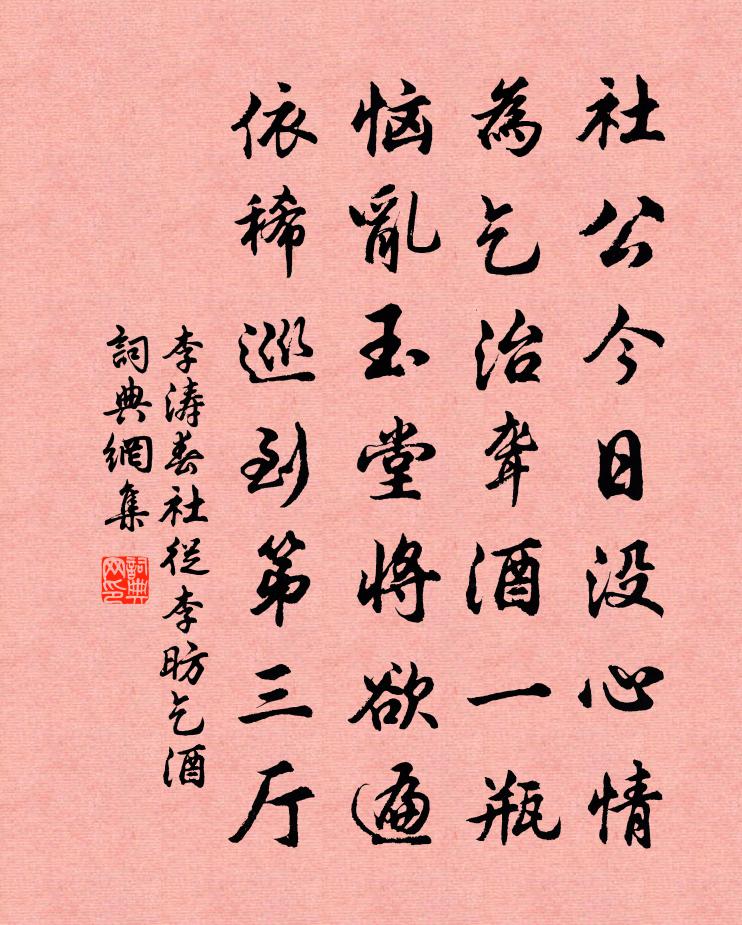 社公今日没心情
為乞治聋酒一瓶
恼亂玉堂將欲遍
依稀巡到第三厅
李涛春社從李昉乞酒
詞典網集
詞典网印